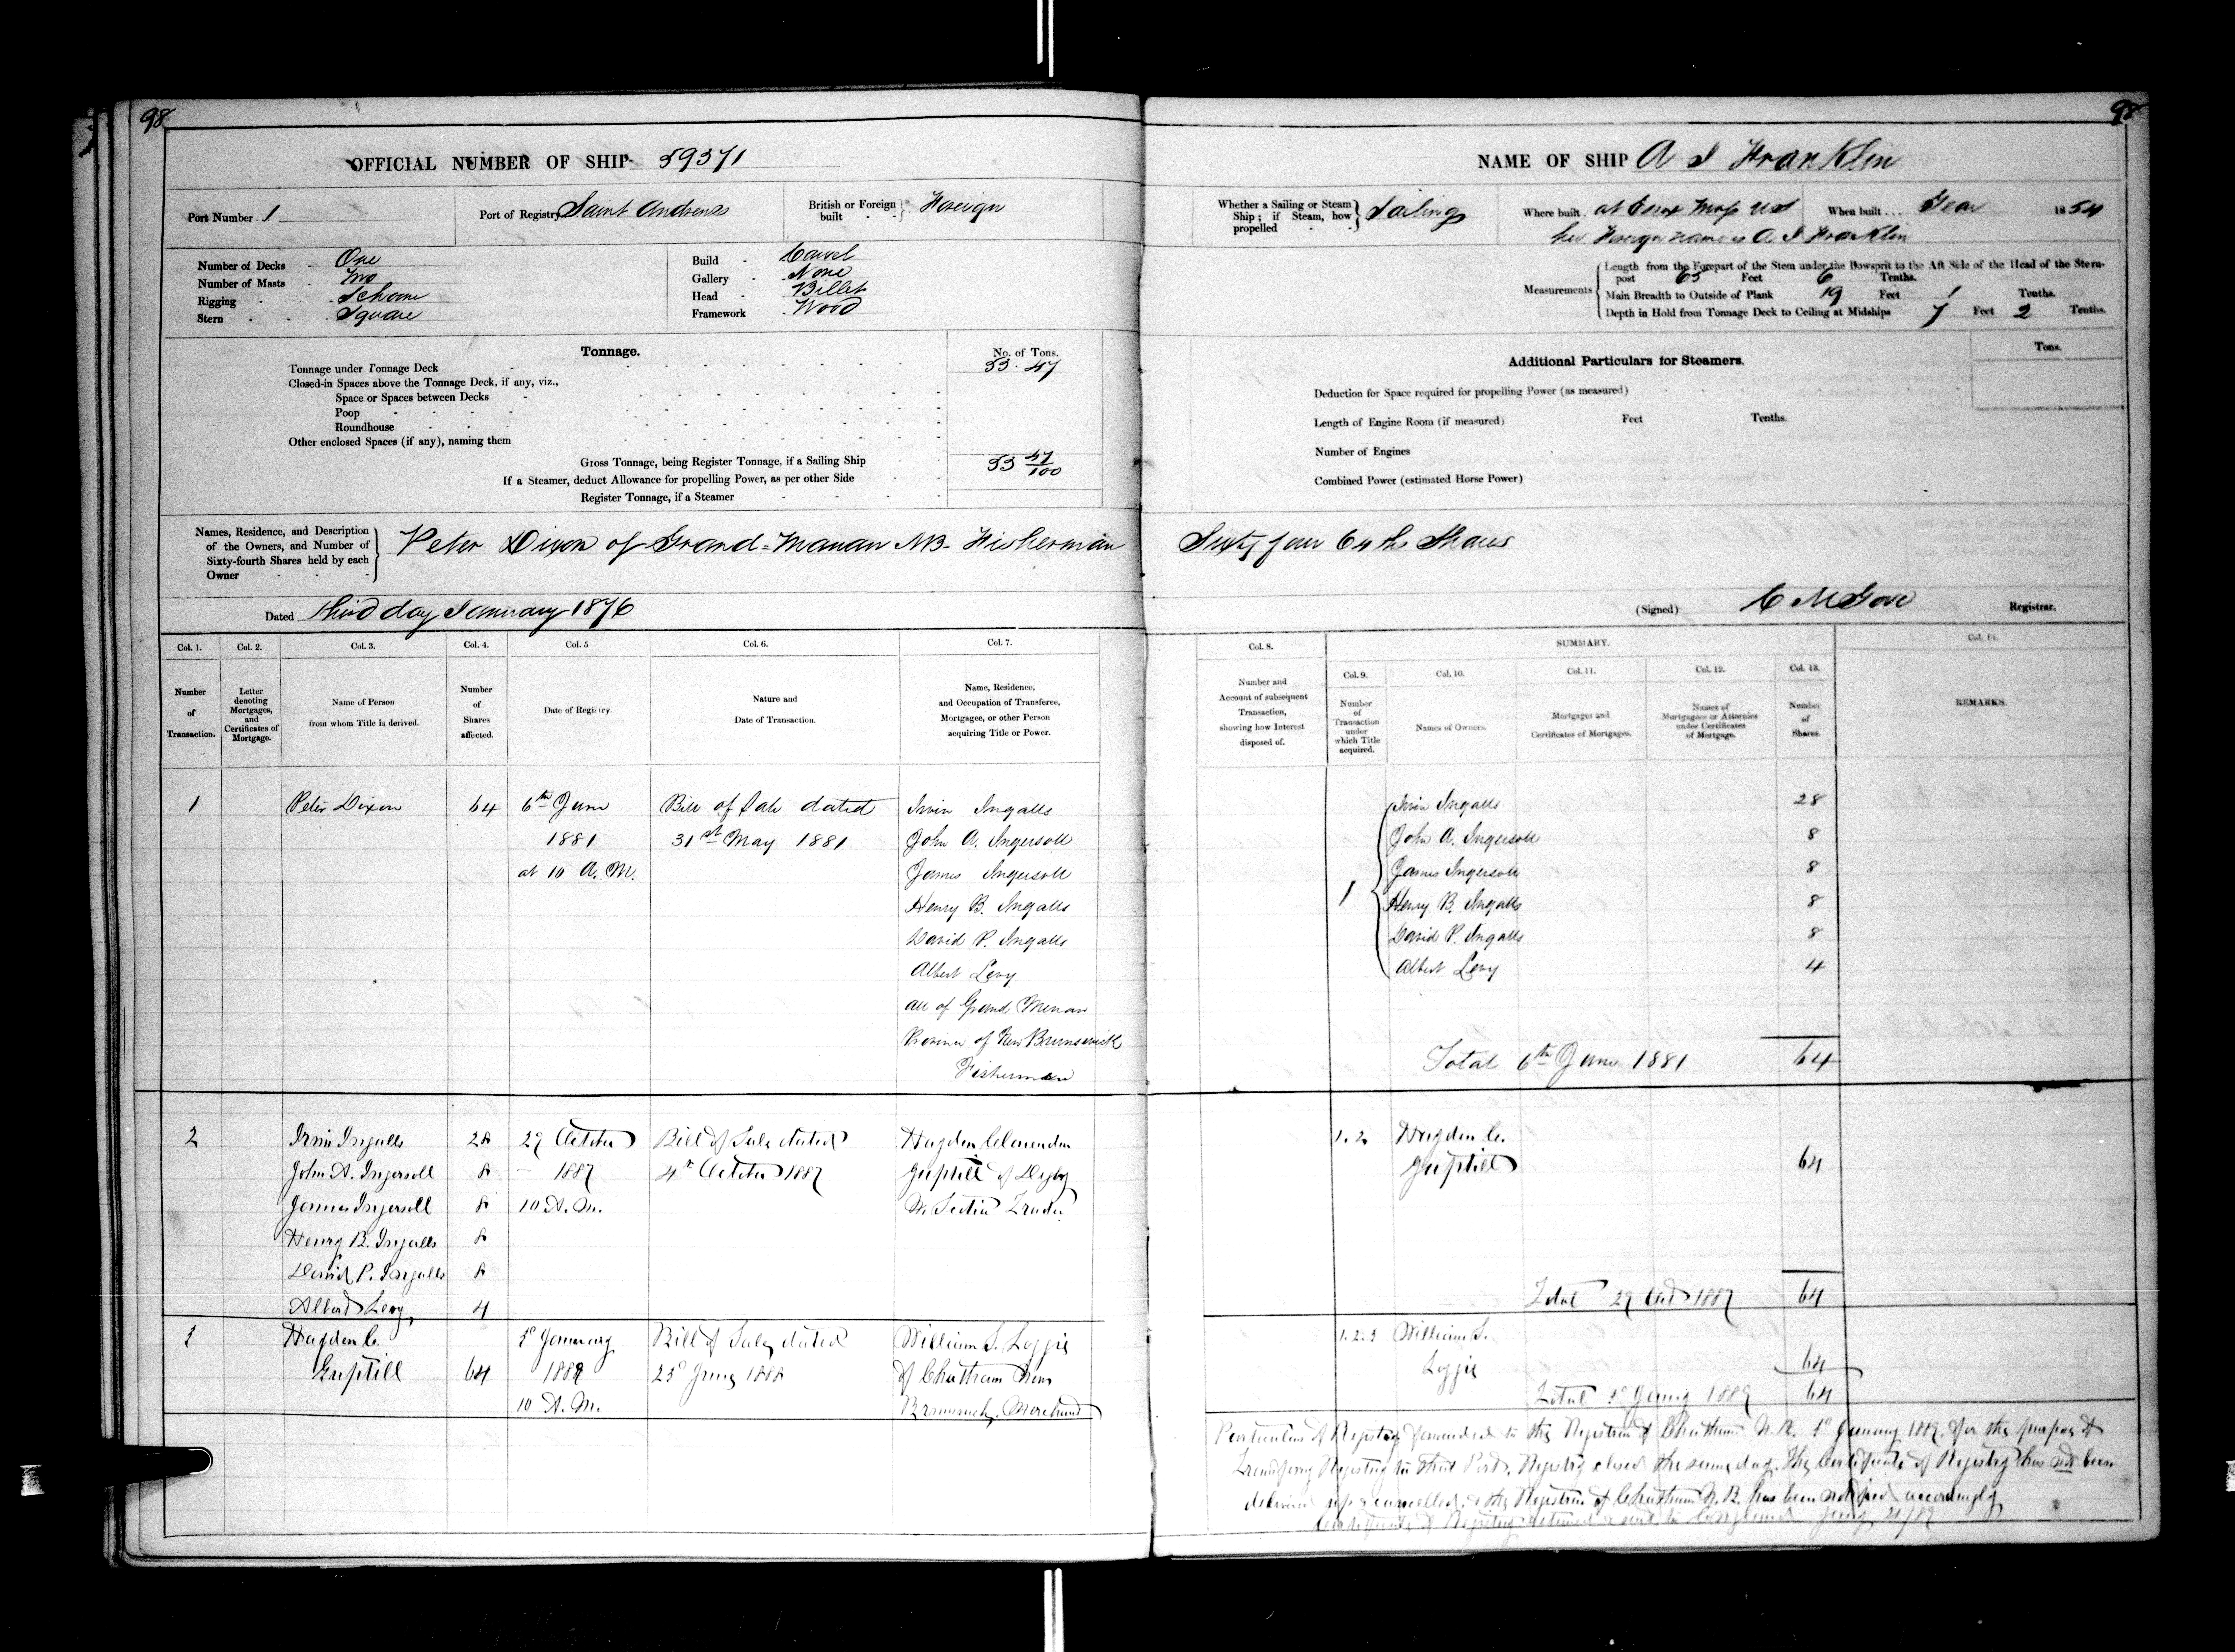 98
98
OFFICIAL NUMBER OF SHIP 59371
NAME OF SHIP A I Franklin
Port Number 1
Port of Registry Saint Andrews
British or Foreign built Foreign
Whether a Sailing or Steam Ship; if Steam, how propelled Sailing
Where built at Essex Mass US
When built... Year 1854
her Foreign name is A I Franklin
Number of Decks One
Number of Masts Two
Rigging Schooner
Stern Square
Build Carvel
Gallery None
Head Billet
Framework Wood
Measurements
Length from the Forepart of the Stem under the Bowsprit to the Aft Side of the Head of the Stern-
post 65 Feet 6 Tenths.
Main Breadth to Outside of Plank 19 Feet 1 Tenths.
Depth in Hold from Tonnage Deck to Ceiling at Midships 7 Feet 2 Tenths.
Tonnage.
No. of Tons.
Tonnage under Tonnage Deck 53.47
Closed-in Spaces above the Tonnage Deck, if any, viz.,
Space or Spaces between Decks
Poop
Roundhouse
Other enclosed Spaces (if any), naming them
Gross Tonnage, being Register Tonnage, if a Sailing Ship 53 47/100
If a Steamer, deduct Allowance for propelling Power, as per other Side
Register Tonnage, if a Steamer
Additional Particulars for Steamers.
Tons.
Deduction for Space required for propelling Power (as measured)
Length of Engine Room (if measured) Feet Tenths.
Number of Engines
Combined Power (estimated Horse Power)
Names, Residence, and Description
of the Owners, and Number of
Sixty-fourth Shares held by each
Owner
Peter Dixon of Grand=Manan NB- Fisherman Sixty four 64ths Shares
Dated third day January 1876
(Signed) C M Gove Registrar.
Col. 1.
Number of Transaction.
Col. 2.
Letter denoting Mortgages, and Certificates of Mortgage.
Col. 3.
Name of Person from whom Title is derived.
Col. 4.
Number of Shares affected.
Col. 5
Date of Registry.
Col. 6.
Nature and Date of Transaction.
Col. 7.
Name, Residence, and Occupation of Transferee, Mortgagee, or other Person acquiring Title or Power.
Col. 8.
Number and Account of subsequent Transaction, showing how Interest disposed of.
SUMMARY.
Col. 9.
Number of Transaction under which Title acquired.
Col. 10.
Names of Owners.
Col. 11.
Mortgages and Certificates of Mortgages.
Col. 12.
Names of Mortgagees or Attornies under Certificates of Mortgage.
Col. 13.
Number of Shares.
Col. 14.
REMARKS
1 Peter Dixon 64 6th June Bill of Sale dated Irvin Ingalls
1881 31st May 1881 John A. Ingersoll
at 10 A.M. James Ingersoll
Henry B. Ingalls
David P. Ingalls
Albert Levy
all of Grand Menan
Province of New Brunswick
Fishermen
1
Irvin Ingalls 28
John A. Ingersoll 8
James Ingersoll 8
Henry B. Ingalls 8
David P. Ingalls 8
Albert Levy 4
Total 6th June 1881 64
2 Irvin Ingalls 28 29 October Bill of Sale dated Hayden Clarendon
John A. Ingersoll 8 1887 4th October 1887 Guptill of Digby
James Ingersoll 8 10 A.M. N. Scotia Trader
Henry B. Ingalls 8
David P. Ingalls 8
Albert Levy 4
1.2 Hayden C.
Guptill 64
Total 29 Oct 1887 64
3 Hayden C. 3d January Bill of Sale dated William S. Loggie
Guptill 64 1889 of Chatham New
10 A.M. Brunswick, Merchant
1.2.3 William S.
Loggie 64
Total 3d Jany 1889 64
Particulars of Registry forwarded to the Registrar of Chatham N.B. 3d January 1889, for the purpose of
Transferring Registry to that Port. Registry closed the same day. The Certificate of Registry has not been
delivered up & cancelled, & the Registrar of Chatham N.B. has been notified accordingly
Certificate of Registry returned & sent to England Jany 21/89